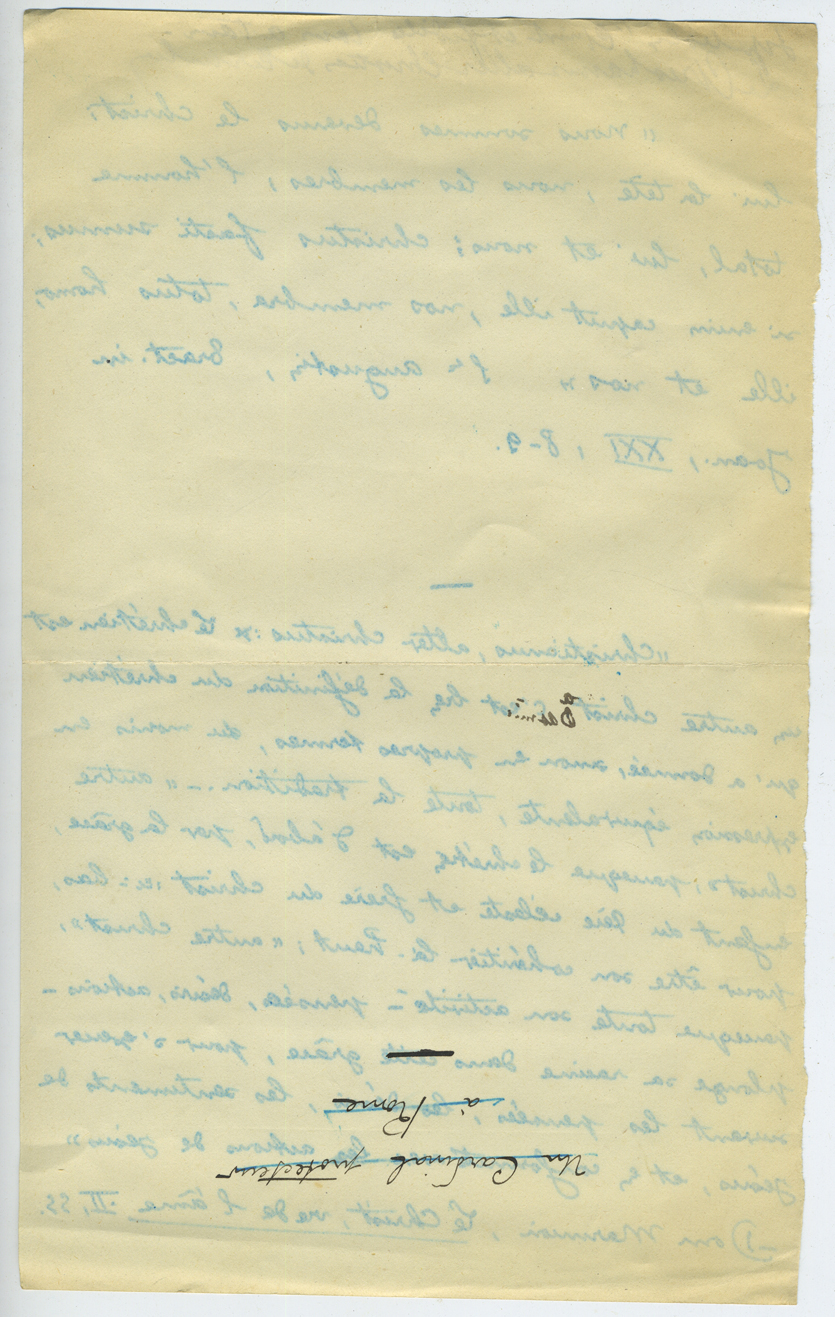 « Nous sommes devenus le Christ;
lui la tête, nous les membres, l'homme
total, lui et nous; Christus facti sumus;
si enim caput ille, nos membra, totus homo,
ille et nos » St Augustin, Tract. in
Joan., XXI, 8-9.
"Christianus, alter Christus: « Le chrétien est
un autre Christ la définition du chrétien
qu'a donnée, sinon en propres termes, du moins en
expression équivalente, toute la tradition. — « autre
Christ », parce que le chrétien est d'abord, par la grâce,
enfant du Père céleste et frère du Christ ici-bas,
pour être son cohéritier là-haut; « autre Christ »,
parce que toute son activité – pensées, désirs, actions –
plonge sa racine dans cette grâce, pour s'exercer
suivant les pensées, les désirs, les sentiments de
Jésus, et en les actions de Jésus »
– Dom Marmion, Le Christ, vie de l'âme. II, ss.
Un Cardinal protecteur
à Rome